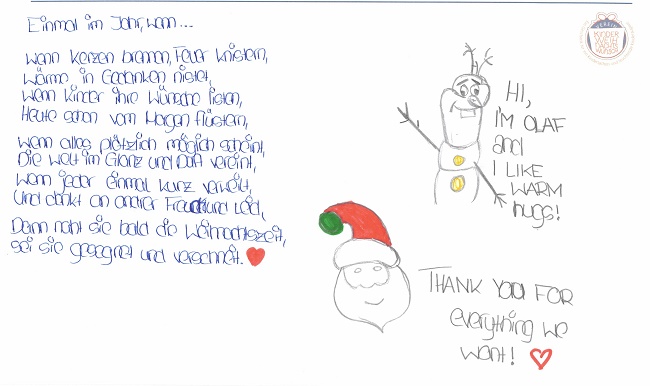 Einmal im Jahr, wenn...
wenn Kerzen brennen, Feuer knistern,
Wärme in Gedanken nistet,
wenn Kinder ihre Wünsche listen,
Heute schon vom Morgen flüstern,
wenn alles plötzlich möglich scheint,
Die Welt im Glanz und Duft vereint,
wenn jeder einmal kurz verweilt,
Und denkt an andrer Freud und Leid,
Dann naht sie bald die Weihnachtszeit,
sei sie gesegnet und verschneit.
HI,
I'M OLAF
and
I LIKE
WARM
hugs!
THANK YOU FOR
everything we
want!